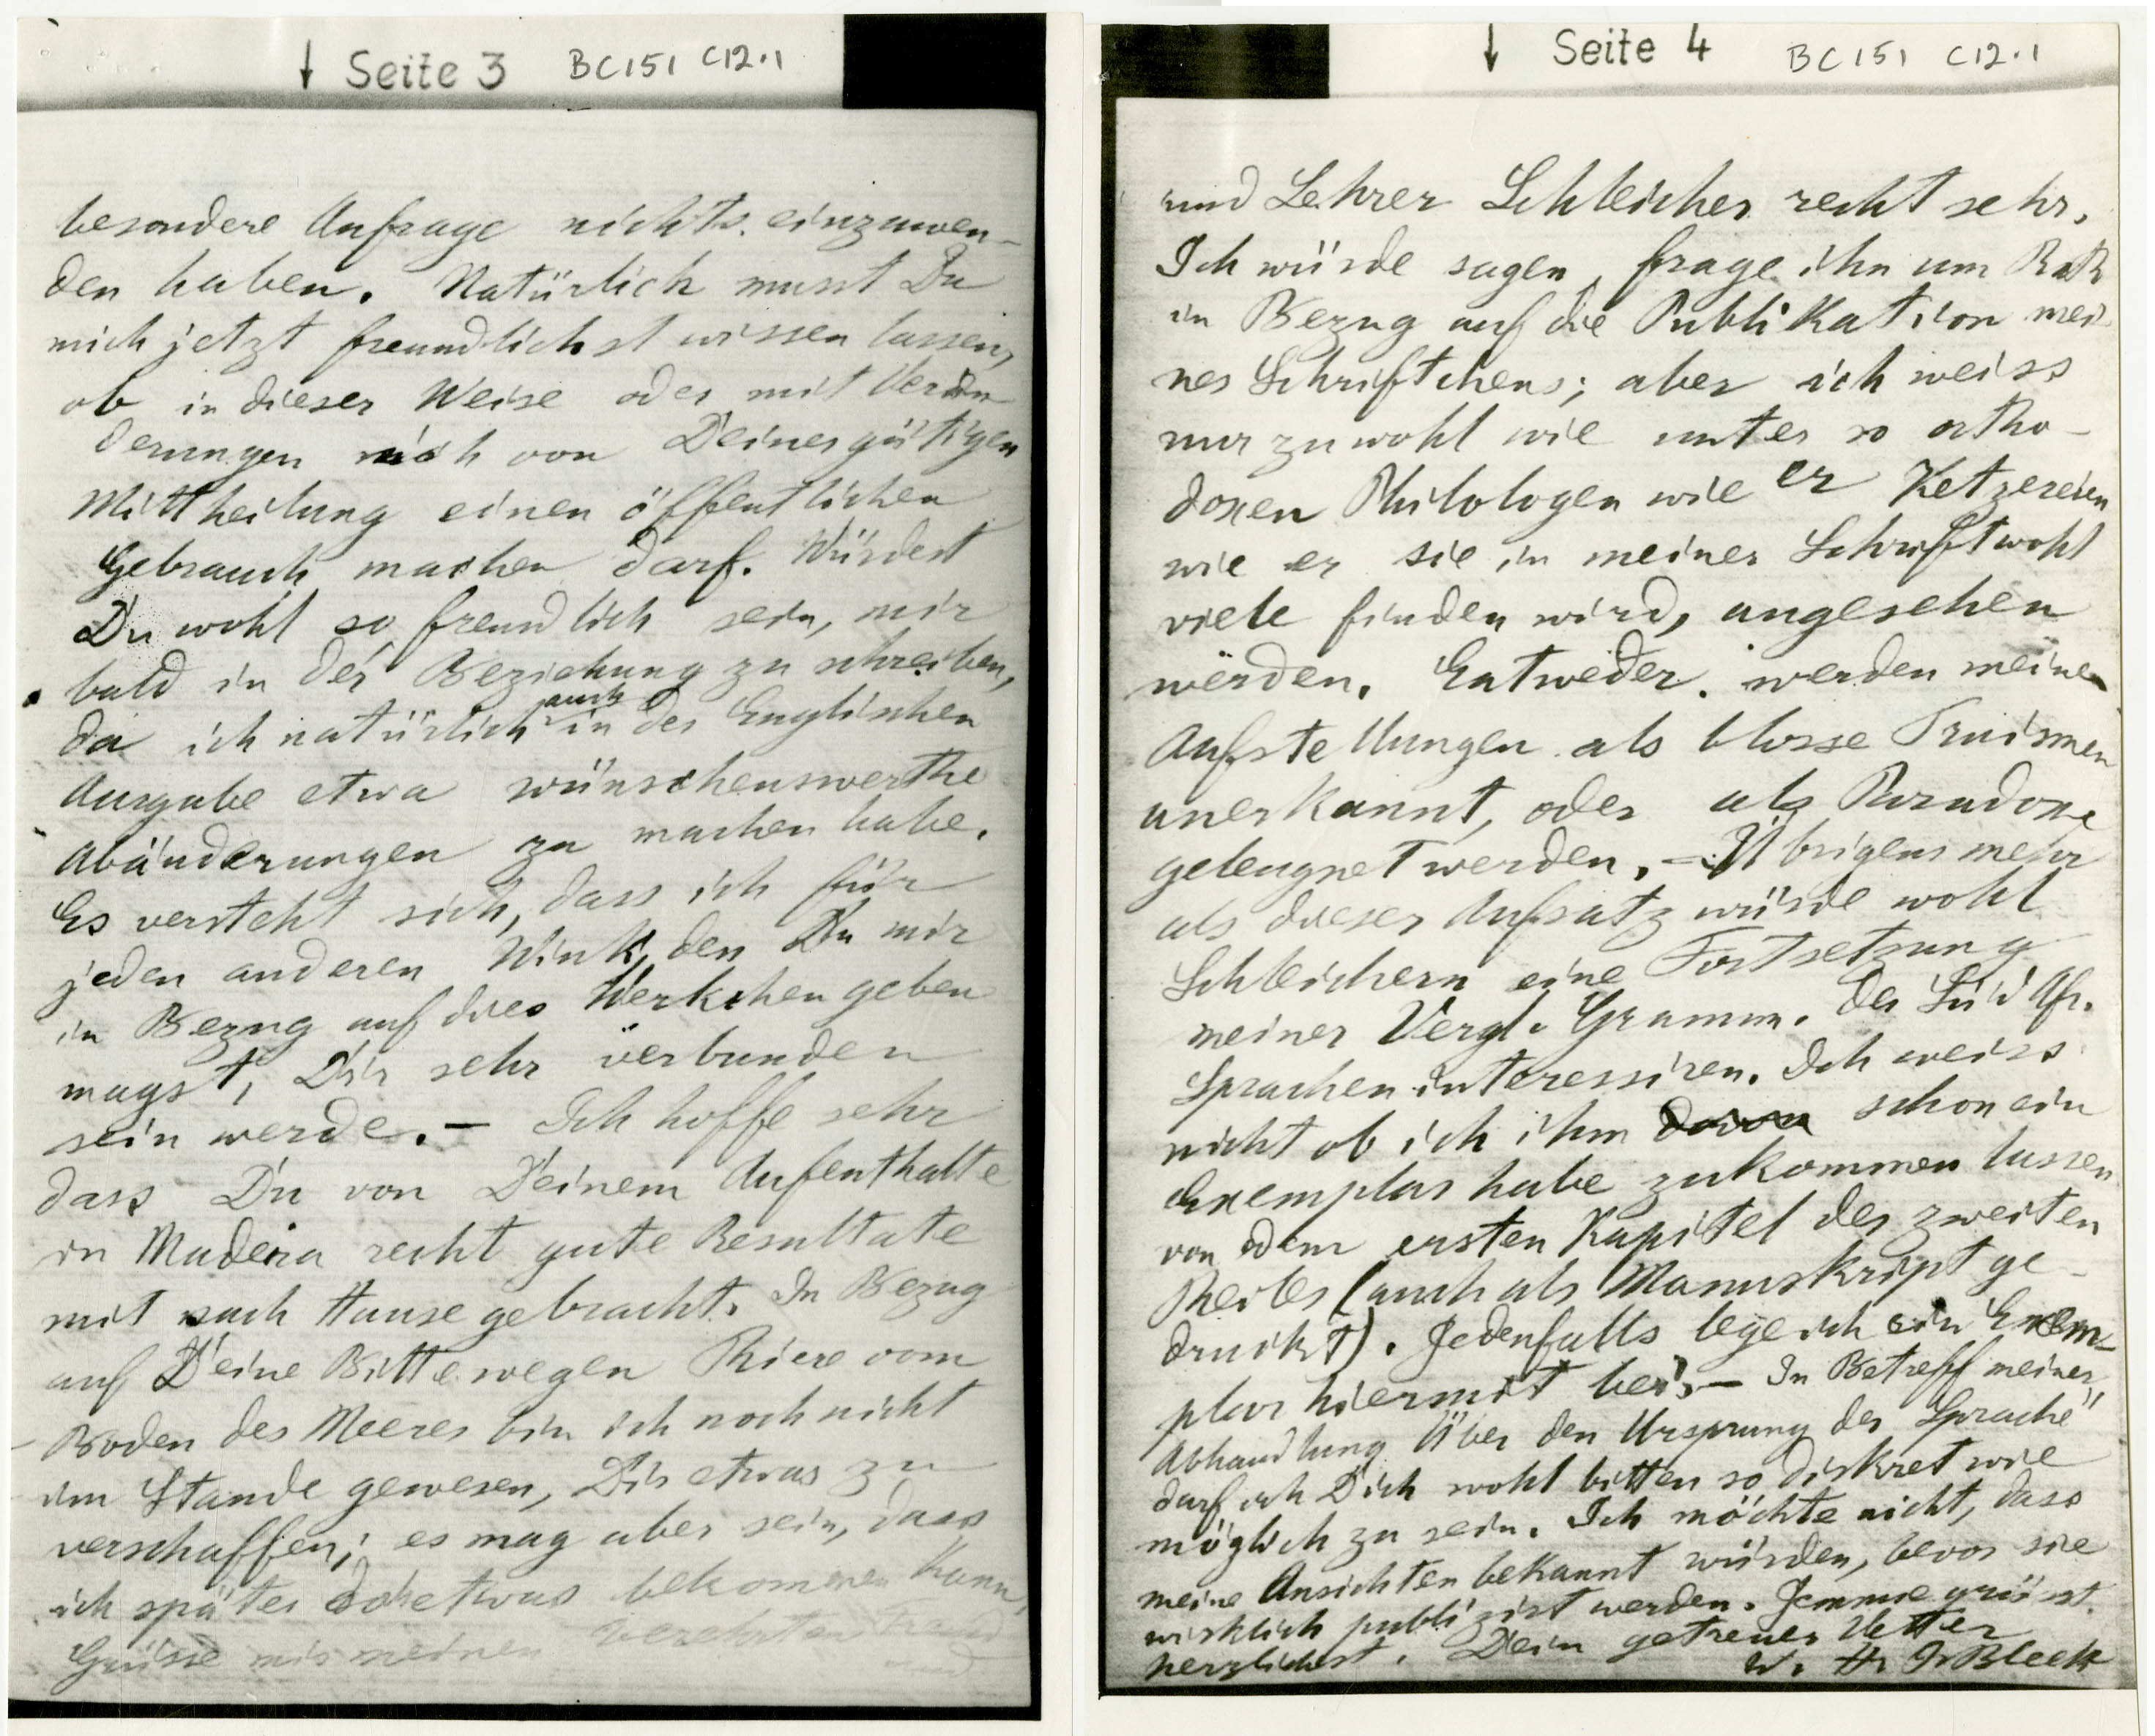 ↓ Seite 3 BC151 C12.1
besondere Anfrage nichts einzuwen-
den haben. Natürlich musst Du
mich jetzt freundlichst wissen lassen,
ob in dieser Weise oder mit Verän-
derungen ich von Deiner gütigen
Mittheilung einen öffentlichen
Gebrauch machen darf. Würdest
Du wohl so freundlich sein, mir
bald in der Beziehung zu schreiben,
da ich natürlich auch in der Englischen
Ausgabe etwa wünschenswerthe
Abänderungen zu machen habe.
Es versteht sich, dass ich für
jeden anderen Wink, den Du mir
in Bezug auf dies Werkchen geben
magst, Dir sehr verbunden
sein werde. – Ich hoffe sehr
dass Du von Deinem Aufenthalte
in Madeira recht gute Resultate
mit nach Hause gebracht. In Bezug
auf Deine Bitte wegen Thiere vom
Boden des Meeres bin ich noch nicht
im Stande gewesen, Dir etwas zu
verschaffen; es mag aber sein, dass
ich später doch etwas bekommen kann.
Grüsse mir meinen verehrten Freund
und
↓ Seite 4 BC151 C12.1
und Lehrer Schleicher recht sehr.
Ich würde sagen, frage ihn um Rath
in Bezug auf die Publikation mei-
nes Schriftchens; aber ich weiss
nur zu wohl wie unter so ortho-
doxen Philologen wie er Ketzereien
wie er sie in meiner Schrift wohl
viele finden wird, angesehen
werden. Entweder werden meine
Aufstellungen als blosse Truismen
anerkannt, oder als Paradoxe
geleugnet werden. – Übrigens mehr
als dieser Aufsatz würde wohl
Schleichern eine Fortsetzung
meiner Vergl. Gramm. der Süd Afr.
Sprachen interessiren. Ich weiss
nicht ob ich ihm davon schon ein
Exemplar habe zukommen lassen
von dem ersten Kapitel des zweiten
Theiles (auch als Manuskript ge-
druckt). Jedenfalls lege ich ein Exem-
plar hiermit bei. – In Betreff meiner
Abhandlung Über den Ursprung der Sprache"
darf ich Dich wohl bitten so diskret wie
möglich zu sein. Ich möchte nicht, dass
meine Ansichten bekannt würden, bevor sie
wirklich publizirt werden. Jemmie grüsst
herzlichst. Dein getreuer Vetter
W. H. I. Bleek